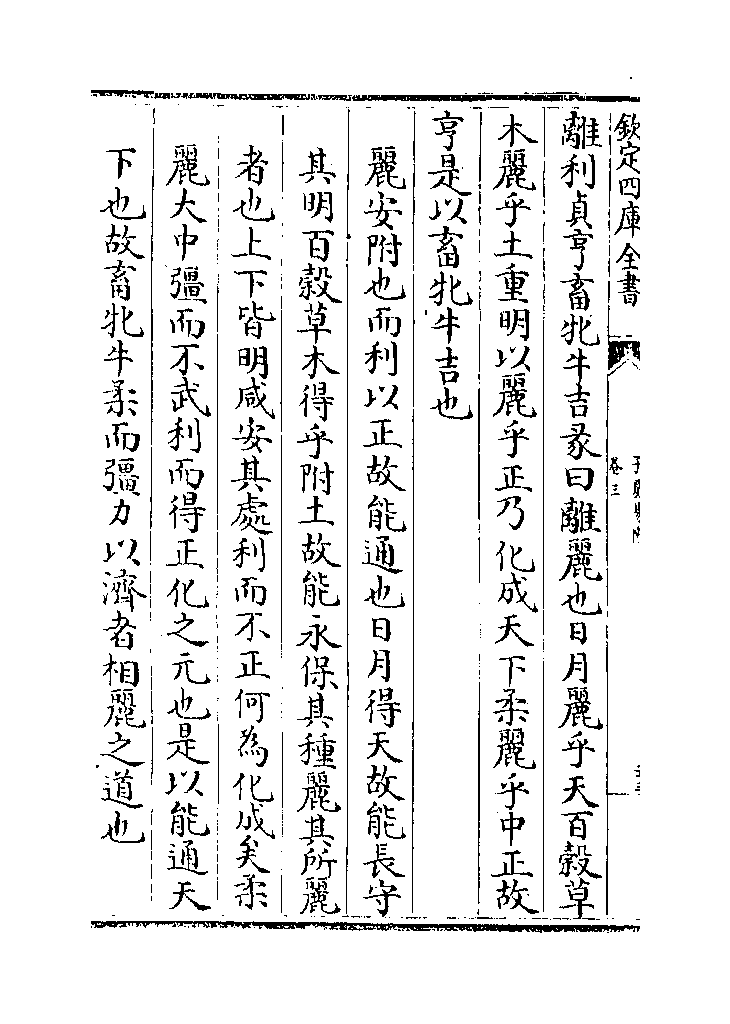 欽定四庫全書
卷三
離利貞亨畜牝牛吉彖曰離麗也日月麗乎天百穀草
木麗乎土重明以麗乎正乃化成天下柔麗乎中正故
亨是以畜牝牛吉也
麗安附也而利以正故能通也日月得天故能長守
其明百穀草木得乎附土故能永保其種麗其所麗
者也上下皆明咸安其處利而不正何為化成矣柔
麗大中彊而不武利而得正化之元也是以能通天
下也故畜牝牛柔而彊力以濟者相麗之道也